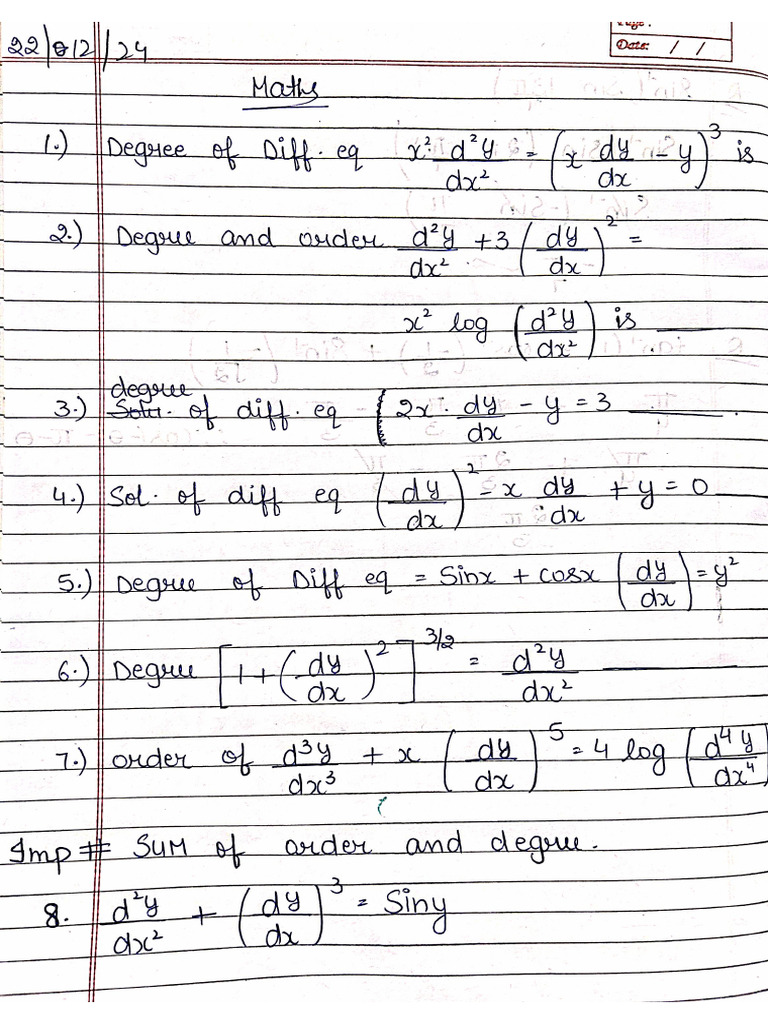 Page:
Date: / /
22/12/24
Maths
1.) Degree of Diff. eq x². d²y/dx² = (x dy/dx - y)³ is
2.) Degree and order d²y/dx² + 3 (dy/dx)² =
x² log (d²y/dx²) is ____
degree
3.) Solu. of diff. eq 2x. dy/dx - y = 3 ____
4.) Sol. of diff eq (dy/dx)² - x dy/dx + y = 0
5.) Degree of Diff eq = Sinx + cosx (dy/dx) = y²
6.) Degree [1 + (dy/dx)²]^3/2 = d²y/dx² ____
7.) order of d³y/dx³ + x (dy/dx)⁵ = 4 log (d⁴y/dx⁴
Imp # SUM of order and degree.
8. d²y/dx² + (dy/dx)³ = Siny